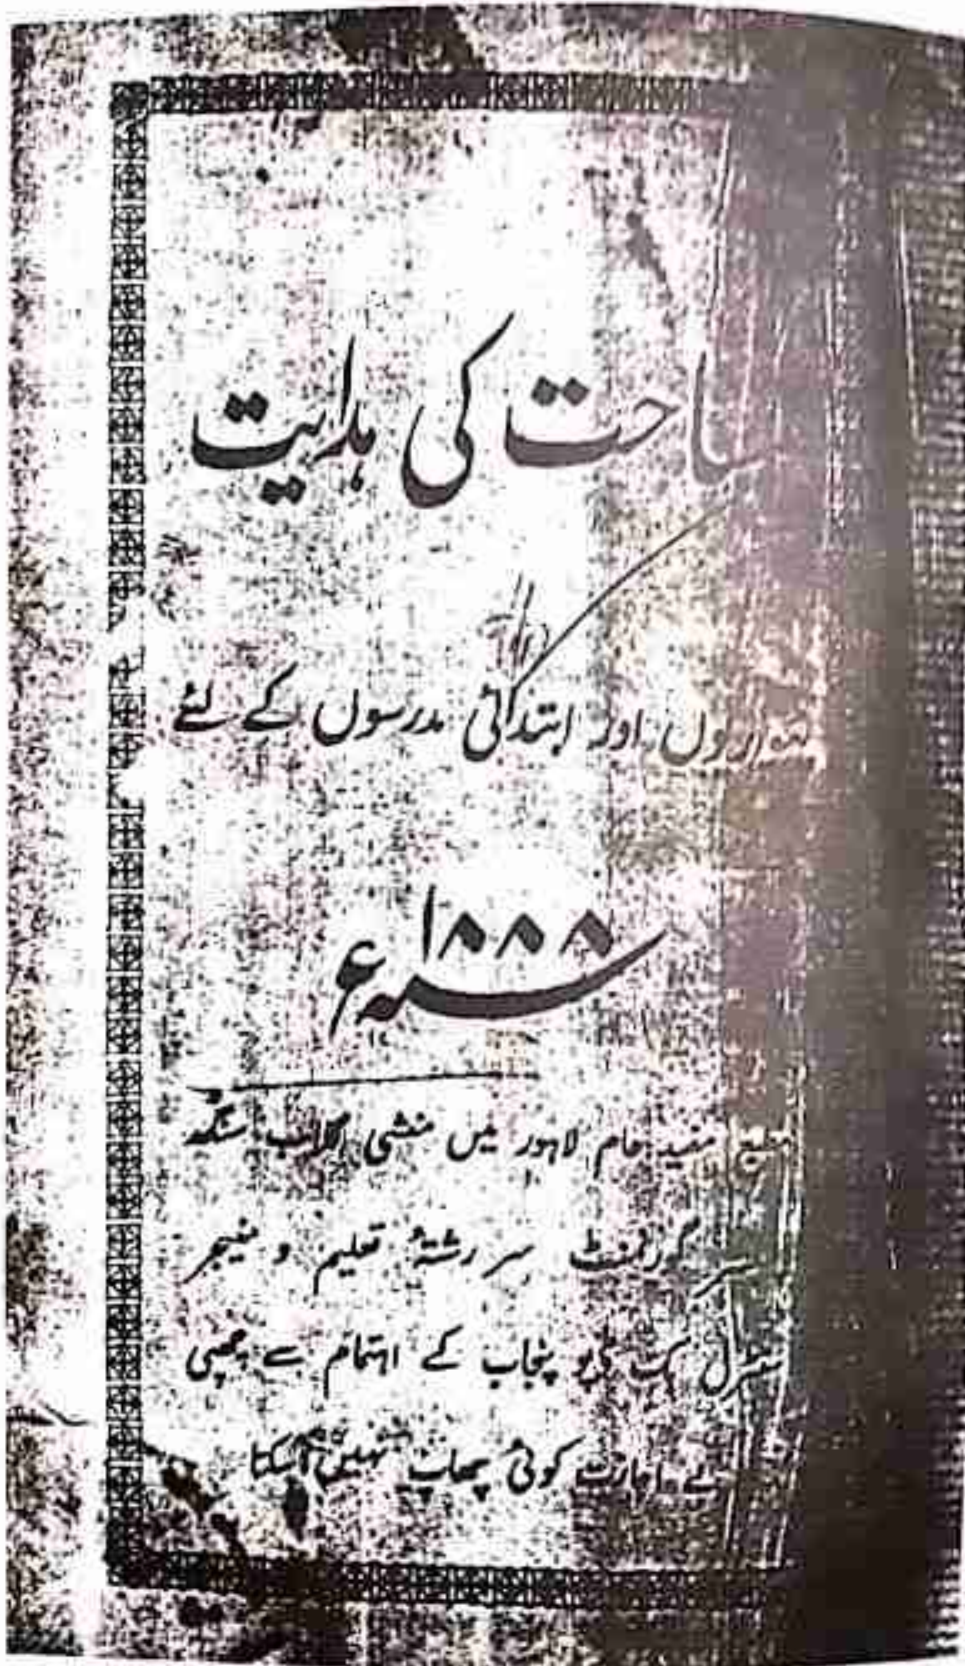 مساحت کی ہدایت
پٹواریوں اور ابتدائی مدرسوں کے لئے
۱۸۸۸ء
مطبع مفید عام لاہور میں منشی گلاب سنگھ
گورنمنٹ سر رشتۂ تعلیم و منیجر
سنٹرل بک ڈپو پنجاب کے اہتمام سے چھپی
بے اجازت کوئی چھاپ نہیں سکتا